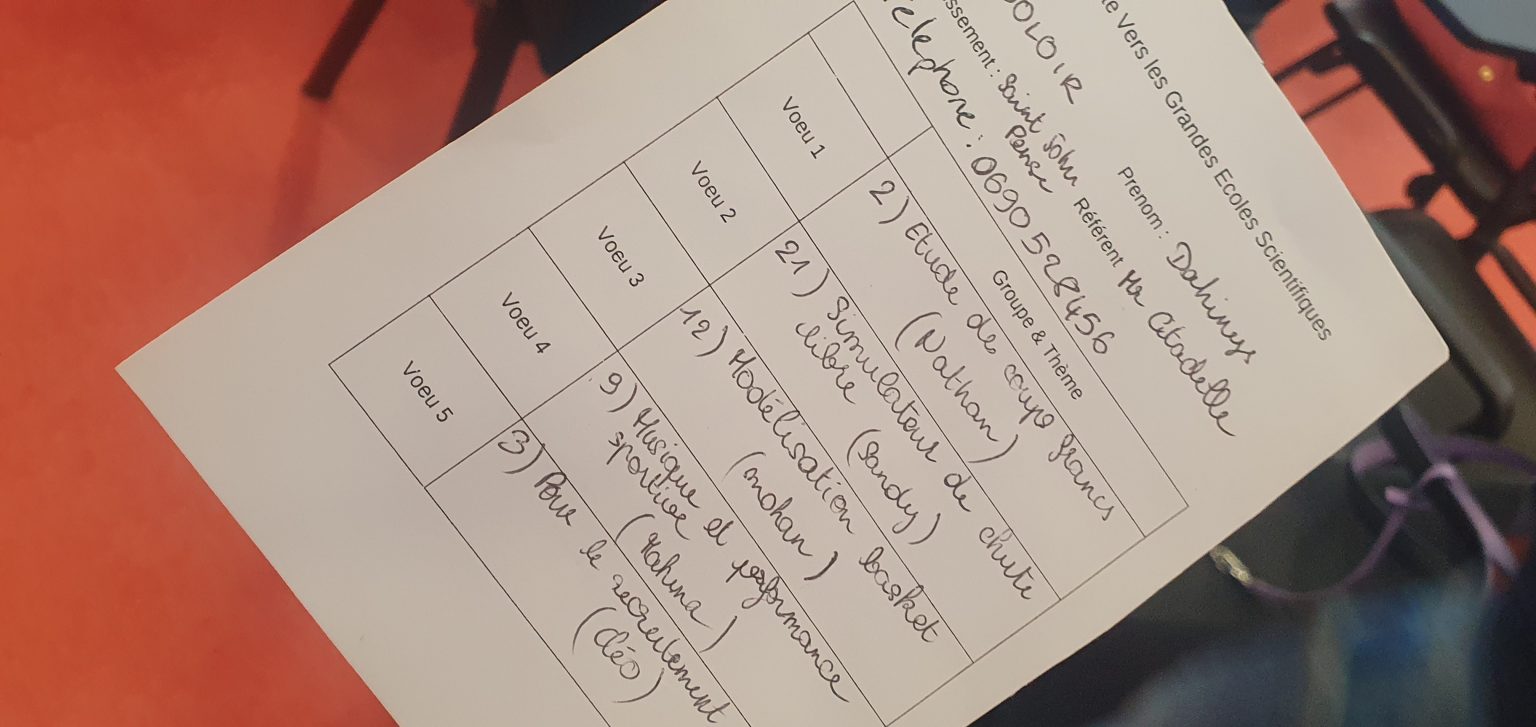 Vers les Grandes Ecoles Scientifiques
Prenom : Dahinys
ssement : Saint John Perse Référent Mr Citadelle
Téléphone : 0690 528456
Groupe & Thème
Voeu 1 2) Etude de coups francs
(Nathan)
Voeu 2 21) Simulateur de chute
libre (Sandy)
Voeu 3 12) Modélisation basket
(mohan)
Voeu 4 9) Musique et performance
sportive (Kahina)
Voeu 5 3) Pour le recrutement
(Cléo)